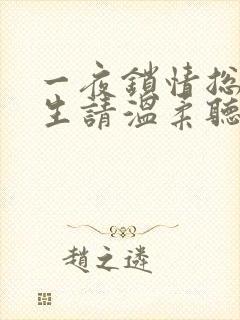 一夜鎖情总
生請溫柔聽
趙之遴